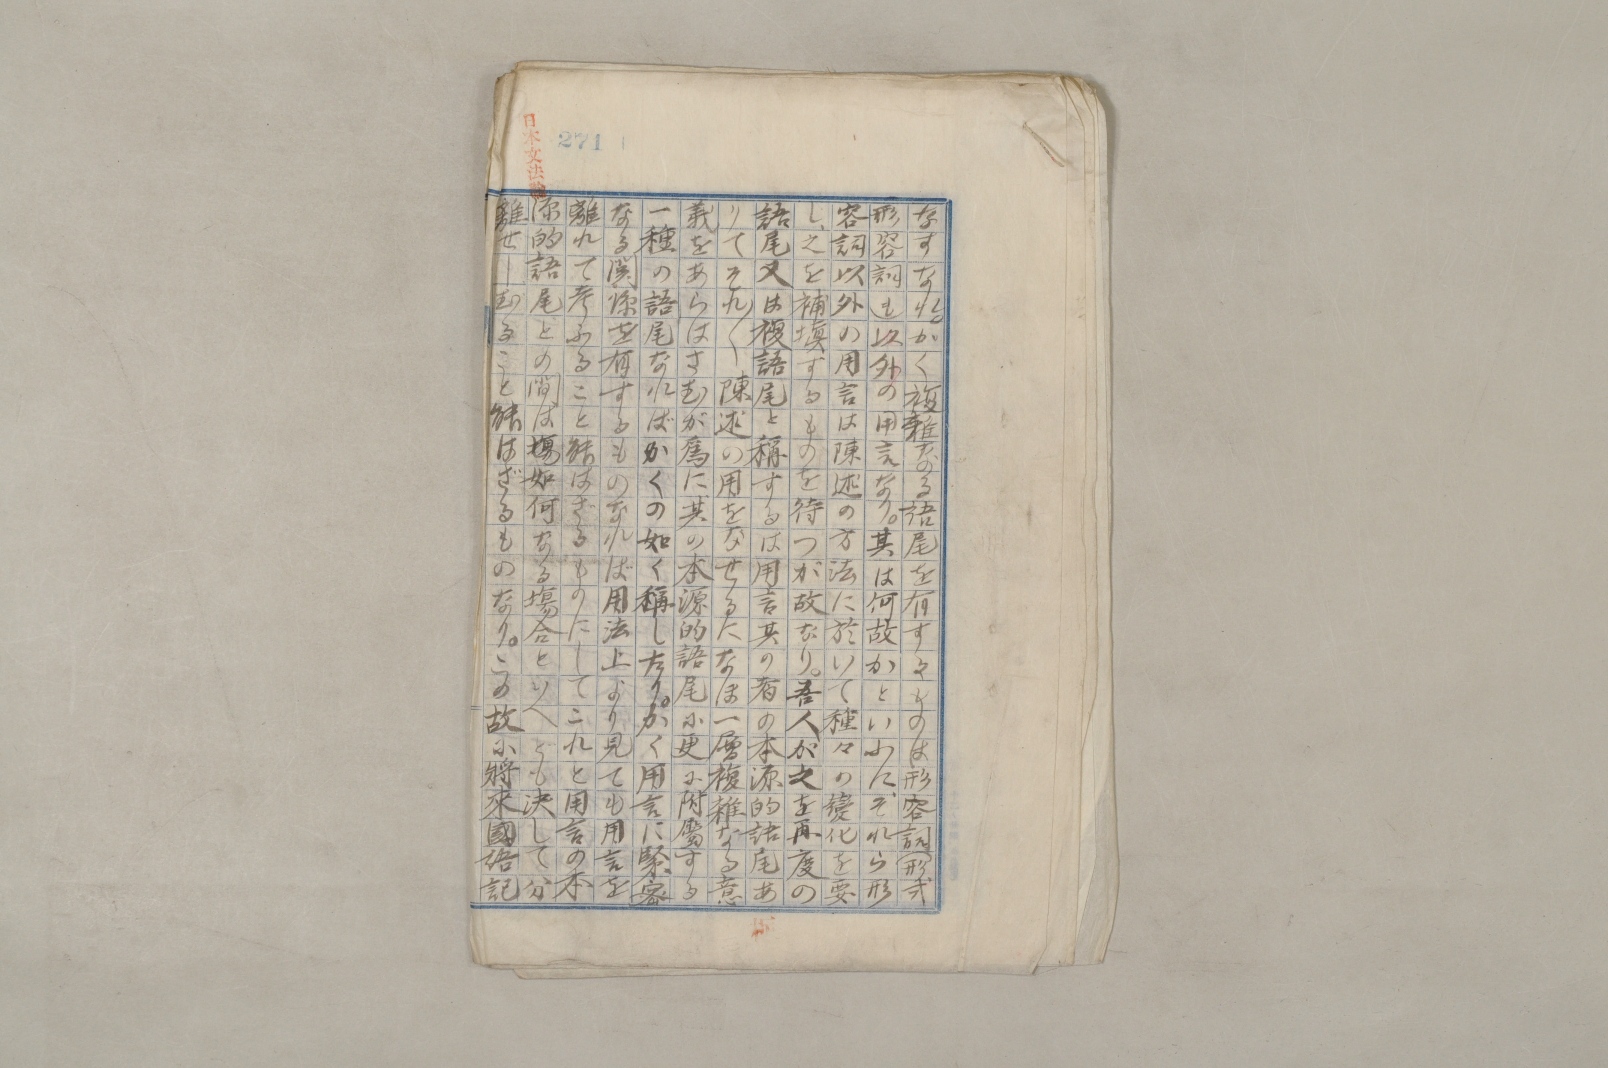 日本文法論
271
なすなれ。かく複雜なる語尾を有するものは形容詞(形式
形容詞も)以外の用言なり。其は何故かといふに、それら形
容詞以外の用言は陳述の方法に於いて種々の變化を要
し、之を補塡するものを待つが故なり。吾人が之を再度の
語尾又は複語尾と稱するは用言其の者の本源的語尾あ
りてそれ〳〵陳述の用をなせるになほ一層複雜なる意
義をあらはさむが爲に其の本源的語尾に更に附屬する
一種の語尾なればかくの如く稱したり。かく用言に緊密
なる関係を有するものなれば用法上より見ても用言を
離れて考ふること能はざるものにしてこれと用言の本
源的語尾との間は如何なる場合といへども決して分
離せしむること能はざるものなり。この故に將來國語記